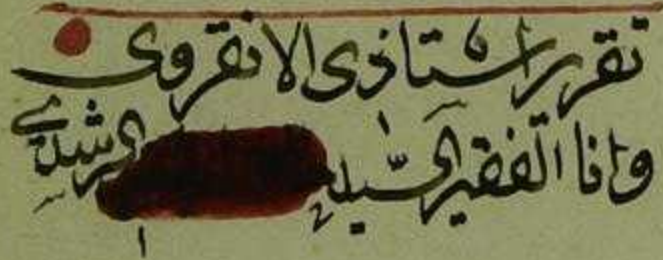 تقرر استاذى الانقروى
وانا الفقير السيد المرشدى